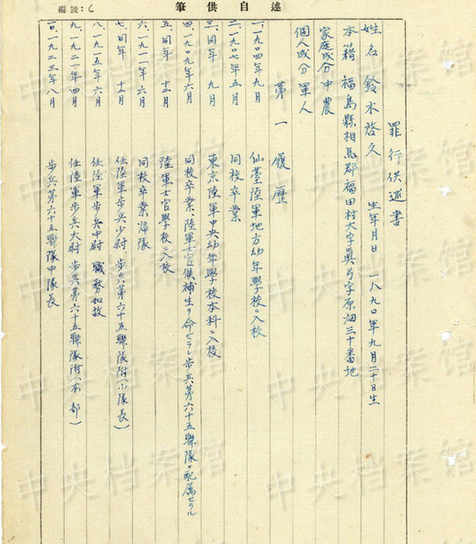 自述供筆
編號:6
罪行供述書
姓名 鈴木啓久 生年月日 一八九〇年九月二十日生
本籍 福島縣相馬郡福田村大字真弓字原畑三十番地
家庭成分 中農
個人成分 軍人
第一 履歴
一、一九〇四年九月 仙臺陸軍地方幼年學校ニ入校
二、一九〇七年五月 同校卒業
三、同年 九月 東京陸軍中央幼年學校本科ニ入校
四、一九〇九年六月 同校卒業 陸軍士官候補生ヲ命セラレ歩兵第六十五聯隊ニ配属セラル
五、同年 十二月 陸軍士官學校ニ入校
六、一九一一年六月 同校卒業 帰隊
七、同年 十二月 任陸軍歩兵少尉 歩兵第六十五聯隊附(小隊長)
八、一九一五年六月 任陸軍歩兵中尉 職務如故
九、一九二二年四月 任陸軍歩兵大尉 歩兵第六十五聯隊附(本部)
一〇、一九二三年八月 歩兵第六十五聯隊中隊長
中央档案館